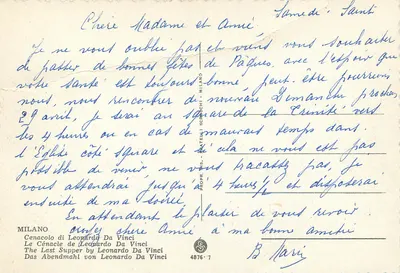 Samedi Saint
Chère Madame et Amie
Je ne vous oublie pas et viens vous souhaiter
de passer de bonnes fêtes de Pâques, avec l'espoir que
votre santé est toujours bonne, peut-être pourrons
nous, nous rencontrer de nouveau Dimanche prochain
29 avril, je serai au square de la Trinité vers
les 4 heures ou en cas de mauvais temps dans
l'Eglise côté square et si cela ne vous est pas
possible de venir, ne vous tracassez pas, je
vous attendrai jusqu'à 4 heures ½ et disposerai
ensuite de ma soirée.
En attendant le plaisir de vous revoir
chère Amie à ma bonne amitié
B Marie
MILANO
Cenacolo di Leonardo Da Vinci
Le Cénacle de Leonardo Da Vinci
The Last Supper by Leonardo Da Vinci
Das Abendmahl von Leonardo Da Vinci
4076-7